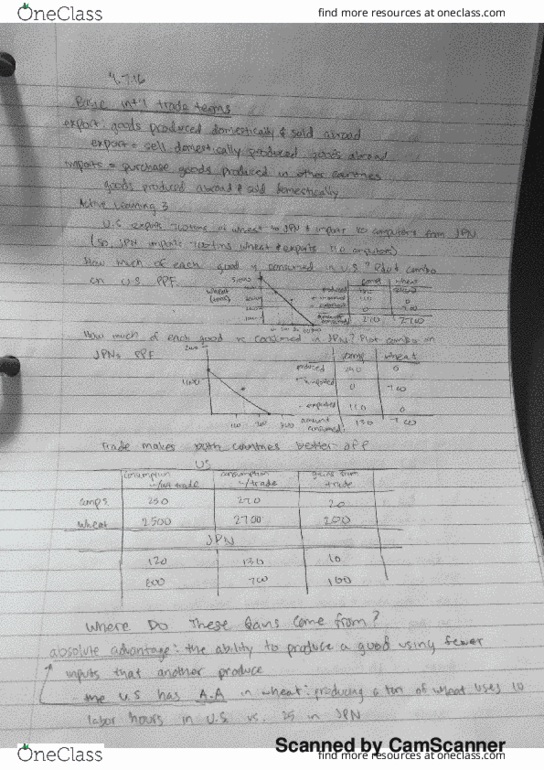 OneClass
find more resources at oneclass.com
4.7.16
Basic int'l trade terms
export: goods produced domestically & sold abroad
export = sell domestically produced goods abroad
imports = purchase goods produced in other countries
goods produced abroad & sold domestically
Active Learning 3
U.S exports 700 tons of wheat to JPN & imports 110 computers from JPN
(so JPN imports 700 tons wheat & exports 110 computers)
How much of each good is consumed in U.S? Plot combo
on U.S PPF.
comp wheat
wheat (tons)
produced
+ imported 110 0
- exported 0 700
amount consumed 270 2700
How much of each good is consumed in JPN? Plot combo on
JPNs PPF
comp wheat
produced 240 0
+ imported 0 700
- exported 110 0
amount consumed: 130 700
2000
1000
100 200 300
Trade makes both countries better off
US
consumption w/out trade consumption w/trade gains from trade
comps 250 270 20
wheat 2500 2700 200
JPN
120 130 10
600 700 100
Where Do These Gains Come From?
absolute advantage: the ability to produce a good using fewer
inputs that another produce
the U.S has A.A in wheat: producing a ton of wheat uses 10
labor hours in U.S vs. 25 in JPN
Scanned by CamScanner
OneClass
find more resources at oneclass.com